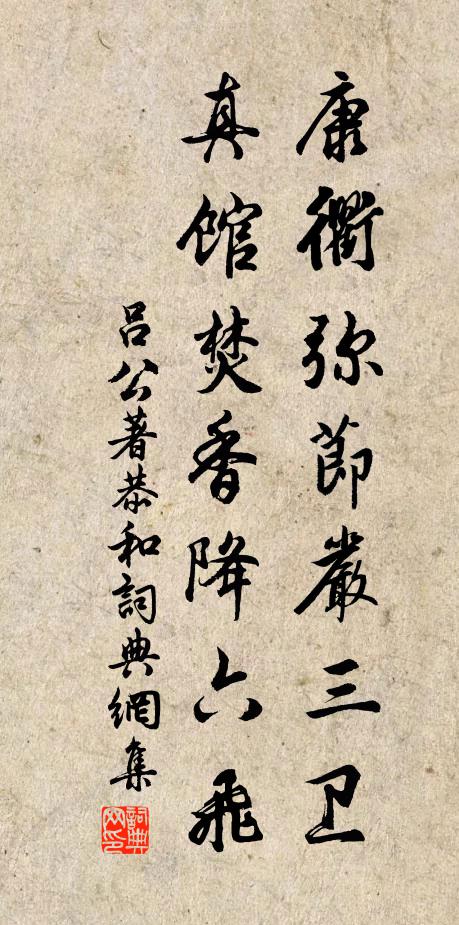 康衢弥節嚴三卫
真館焚香降六飛
吕公著恭和詞典網集
詞典网印